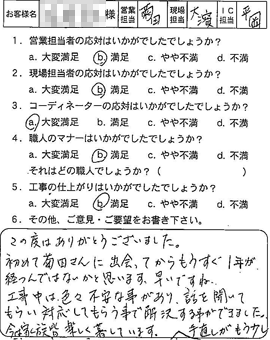 お客様名 様 営業担当 菊田 現場担当 大濱 IC担当 平岡
1．営業担当者の応対はいかがでしたでしょうか？
a. 大変満足 b 満足 c. やや不満 d. 不満
2．現場担当者の応対はいかがでしたでしょうか？
a. 大変満足 b 満足 c. やや不満 d. 不満
3．コーディネーターの応対はいかがでしたでしょうか？
a. 大変満足 b. 満足 c. やや不満 d. 不満
4．職人のマナーはいかがでしたでしょうか？
a. 大変満足 b 満足 c. やや不満 d. 不満
それはどの職人でしょうか？（　　　）
5．工事の仕上がりはいかがでしたでしょうか？
a. 大変満足 b 満足 c. やや不満 d. 不満
6．その他、ご意見・ご要望をお書き下さい。
この度はありがとうございました。
初めて菊田さんに出会ってからもうすぐ1年が
経つんではないかと思います。早いですね。
工事中は色々不安な事があり、話を聞いて
もらい対応してもらう事で解決する事ができました。
今家族皆楽しく暮しています。 手直しがもう少し